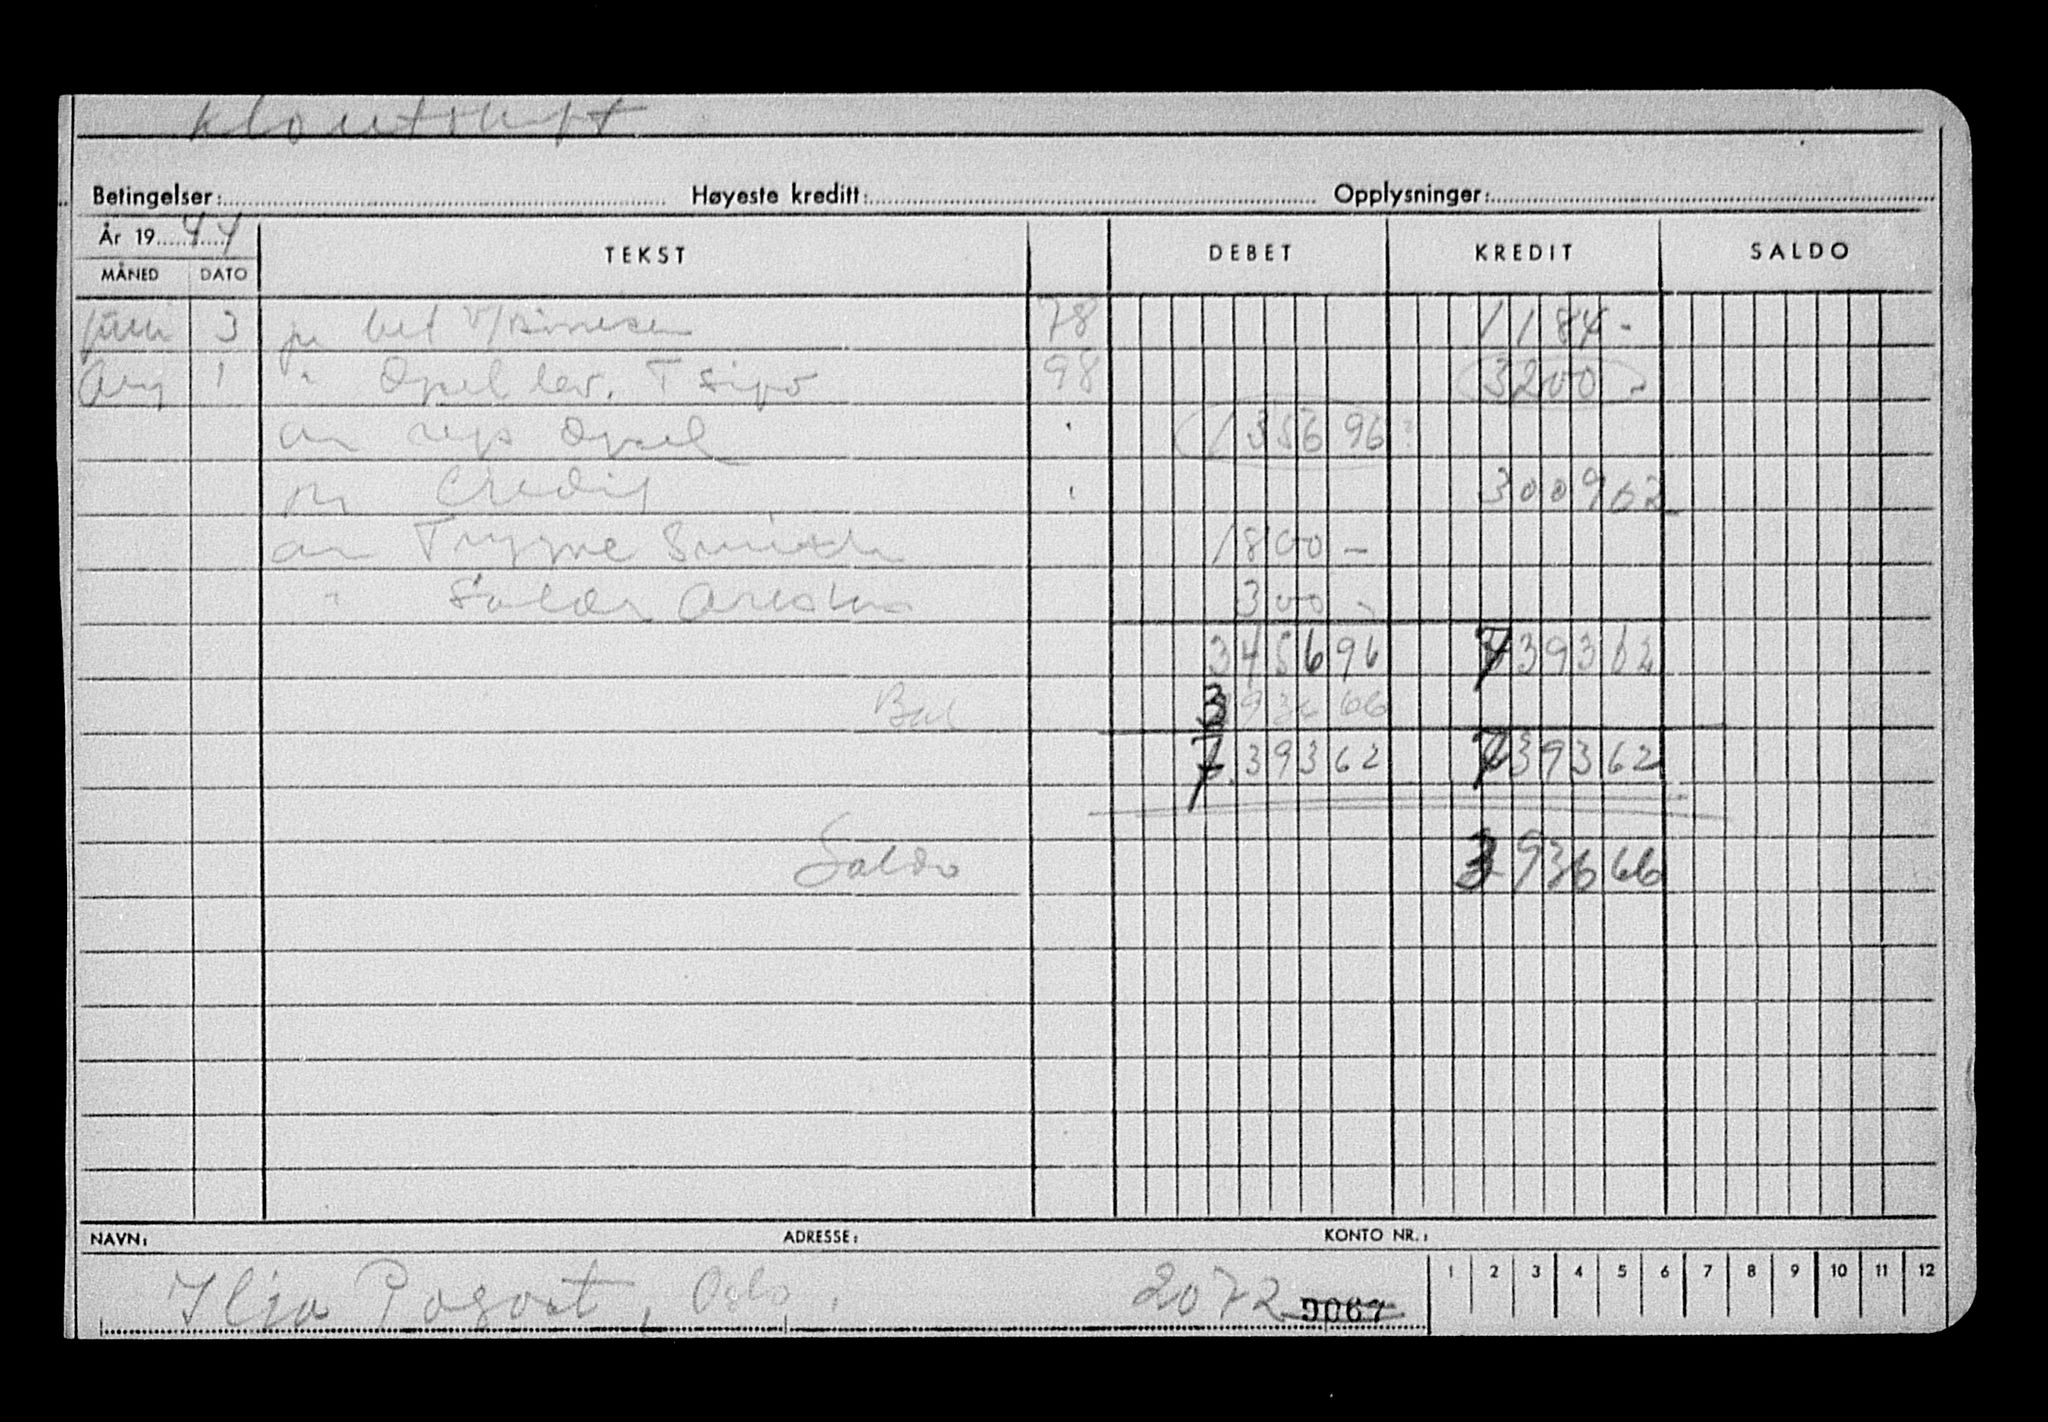 Betingelser: Høyeste kreditt: Opplysninger:
År 1944
MÅNED DATO TEKST DEBET KREDIT SALDO
3 pr bet 78 1184 -
Aug 1 " Opel lev. T 98 3200 -
an rep Opel 1356 96
pr Credit 3009 62
an Trygve 1800 -
" 300 -
3456 96 7393 62
Bal 3936 66
7.393 62 7393 62
Saldo 3936 66
NAVN: ADRESSE: KONTO NR.:
1 2 3 4 5 6 7 8 9 10 11 12
Ilja Pogost, Oslo. 2072 9067